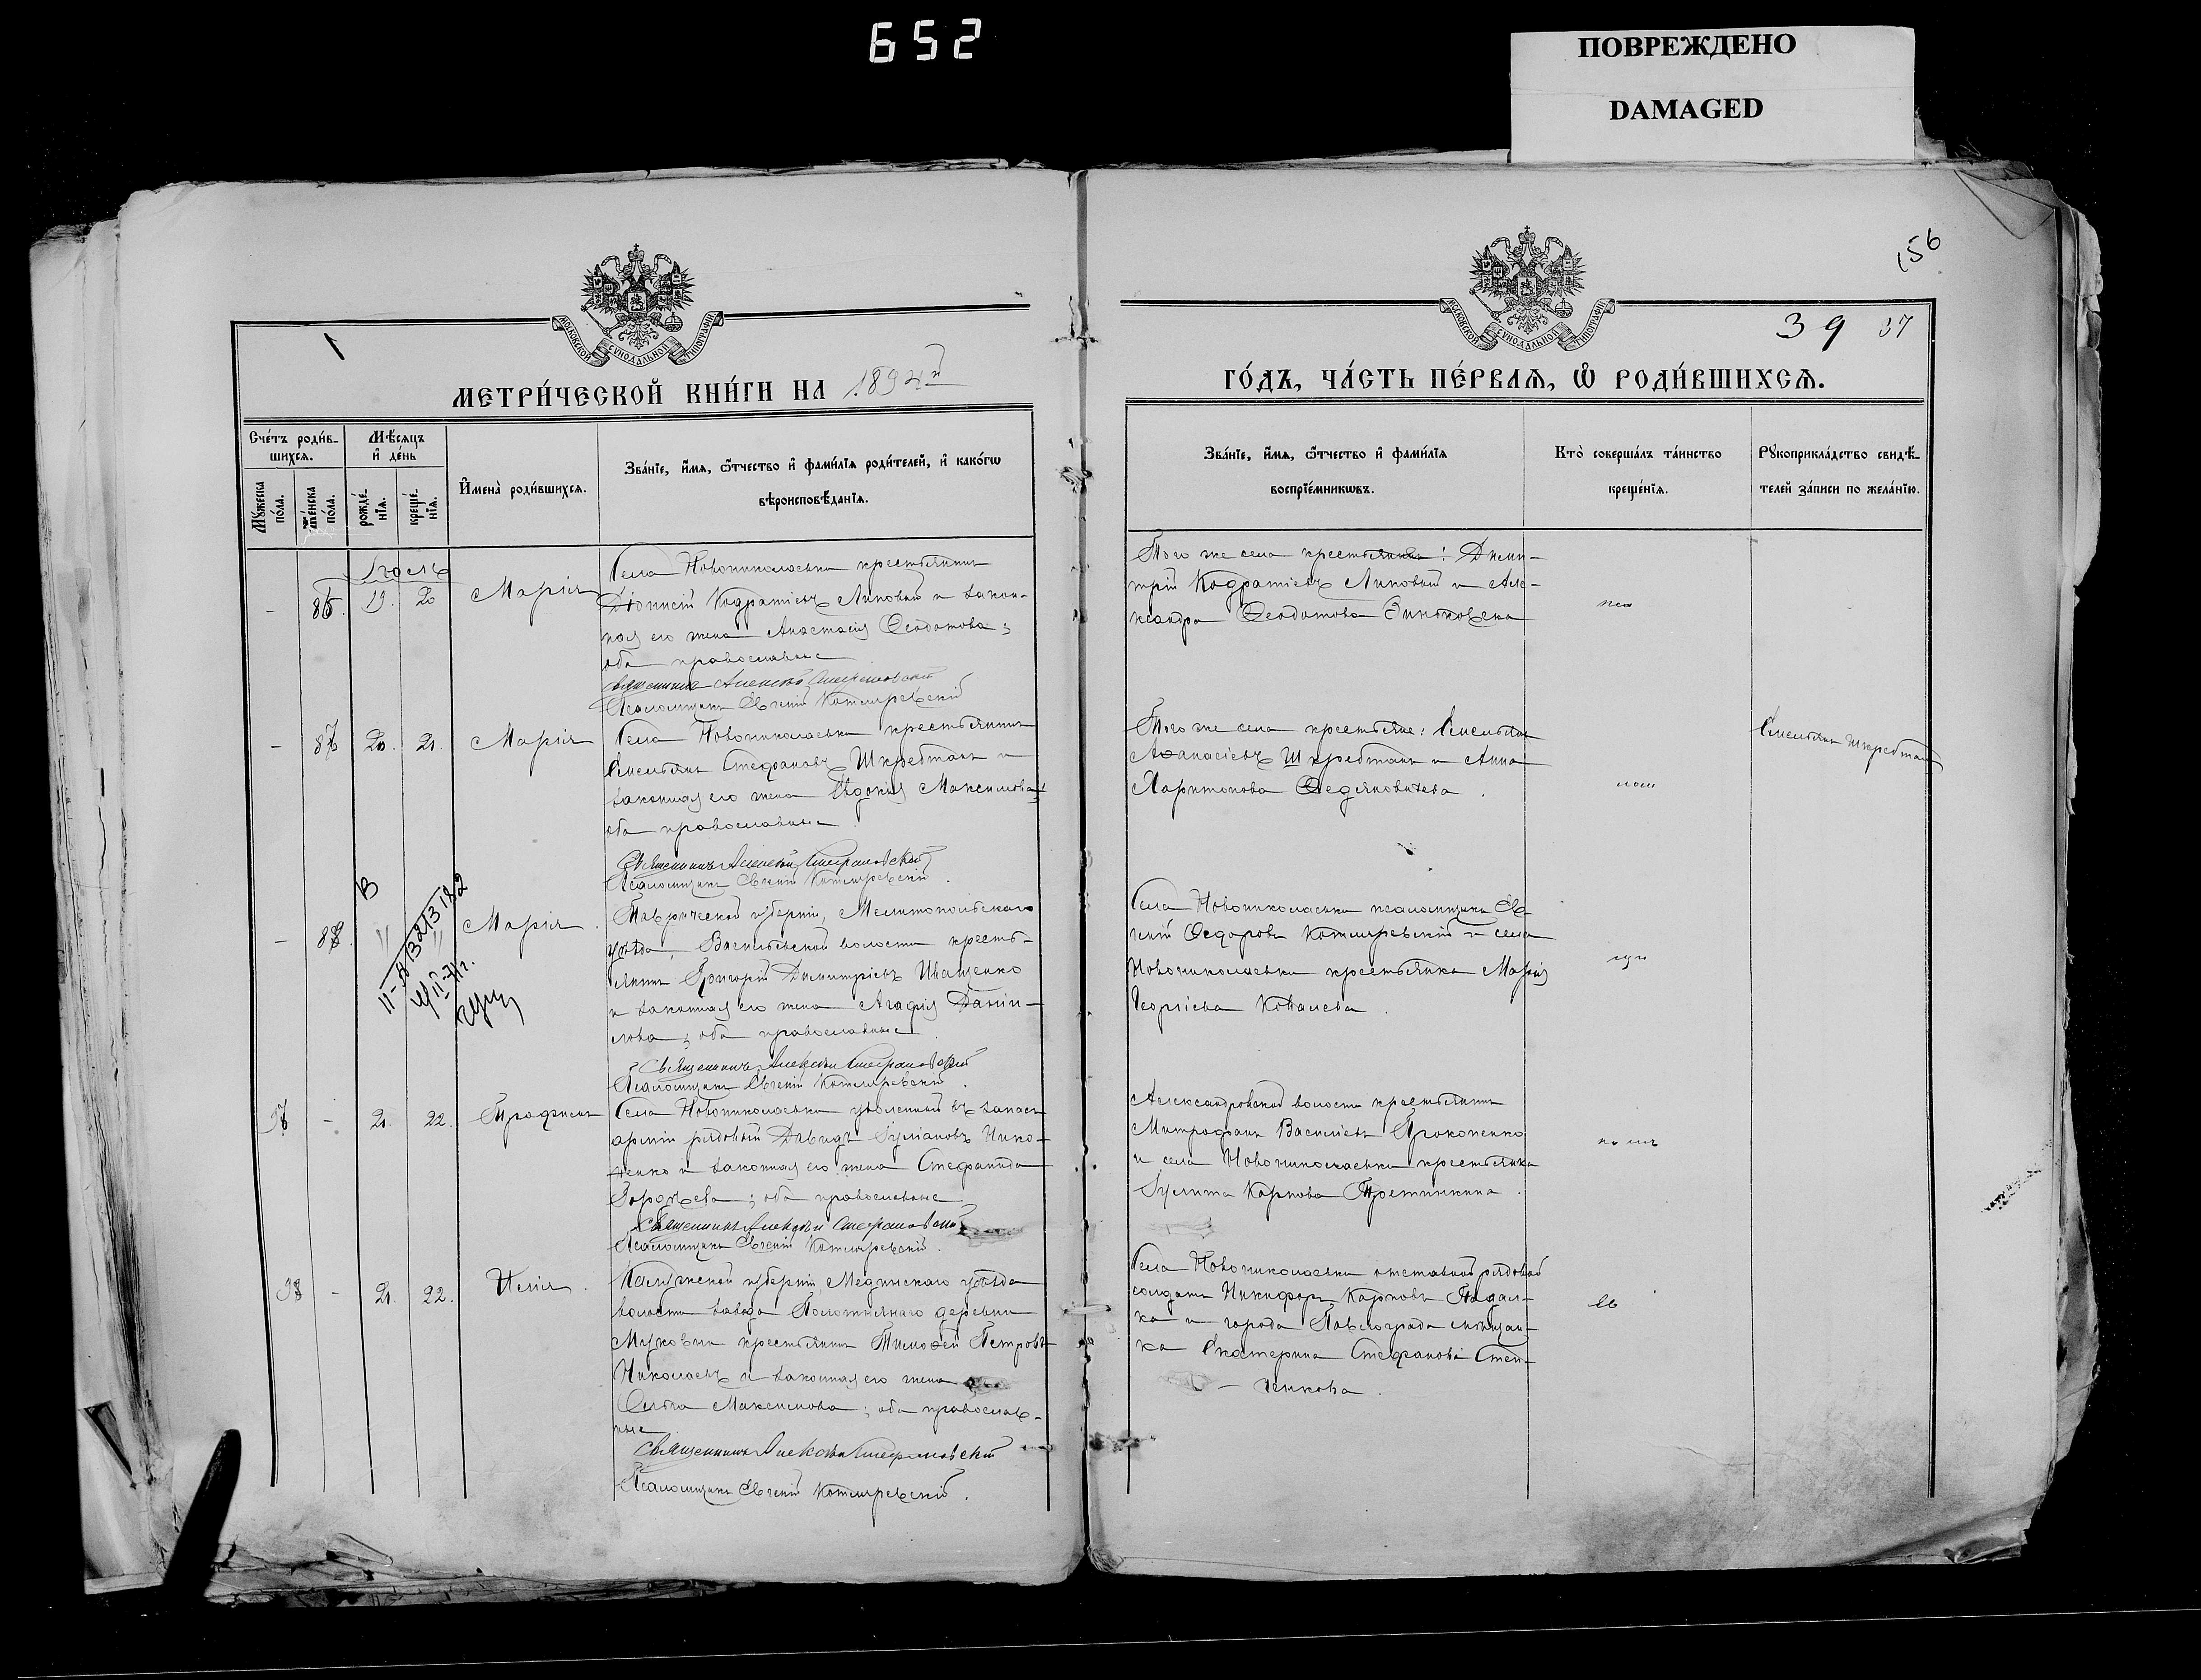 652
ПОВРЕЖДЕНО
DAMAGED
156
МОСКОВСКОЙ СУНОДАЛЬНОЙ ТИПОГРАФІИ
МОСКОВСКОЙ СУНОДАЛЬНОЙ ТИПОГРАФІИ
39 37
МЕТРИ́ЧЕСКОЙ КНИ́ГИ НА 1894й
ГО́ДЪ, ЧА́СТЬ ПЕ́РВАѦ, Ѽ РОДИ́ВШИХСѦ.
Сче́тъ роди́в-
шихсѧ.
Мѣ́сѧцъ
и҆ де́нь
Мꙋ́жеска по́ла.
Же́нска по́ла.
рожде́-
нїѧ.
креще́-
нїѧ.
И҆мена̀ роди́вшихсѧ.
Зва́нїе, и҆́мѧ, ѻ҆́тчество и҆ фами́лїѧ роди́телей, и҆ како́гѡ
вѣроисповѣ́данїѧ.
Зва́нїе, и҆́мѧ, ѻ҆́тчество и҆ фами́лїѧ
воспрїе́мникѡвъ.
Кто̀ соверша́лъ та́инство
креще́нїѧ.
Рꙋкоприкла́дство свидѣ́-
телей за́писи по жела́нїю.
Іюль
19. 20
Марія
Села Новониколаевки крестьянинъ
Діонисій Кодратіевъ Липовый и закон-
ная его жена Анастасія Ѳеодотова;
оба православные
Священникъ Алексѣй
Псаломщикъ Евгеній Котляревскій
Того же села крестьяне: Дими-
трій Кодратіевъ Липовый и Алек-
сандра Ѳеодотова
- 20. 21. Марія
Села Новониколаевки крестьянинъ
Емельянъ Стефановъ Шкребтанъ и
законная его жена Евдокія Максимова;
оба православные
Священникъ Алексѣй
Псаломщикъ Евгеній Котляревскій.
Того же села крестьяне: Емельянъ
Аѳанасіевъ Шкребтанъ и Анна
Харитонова
Емельянъ Шкребтанъ
- " " Марія.
Таврической губерніи, Мелитопольскаго
уѣзда, Васильевской волости кресть-
янинъ Григорій Димитріевъ Иващенко
и законная его жена Агафія Даніи-
лова; оба православные.
Священникъ Алексѣй
Псаломщикъ Евгеній Котляревскій.
Села Новониколаевки псаломщикъ Ев-
геній Ѳеодоровъ Котляревскій и села
Новониколаевки крестьянка Марія
Георгіева Ковалева.
- 21. 22. Трофимъ
Села Новониколаевки уволенный въ запасъ
арміи рядовый Давидъ Іуліановъ Нико-
ненко и законная его жена Стефанида
Гордѣева; оба православные
Священникъ Алексѣй
Псаломщикъ Евгеній Котляревскій.
Александровской волости крестьянинъ
Митрофанъ Василіевъ Прокопенко
и села Новониколаевки крестьянка
Іулитта Карпова
- 21. 22. Илія.
Калужской губерніи, Медынскаго уѣзда
волости завода Полотнянаго деревни
крестьянинъ Тимоѳей Петровъ
Николаевъ и законная его жена
Ольга Максимова; оба православ-
ные.
Священникъ Алексѣй
Псаломщикъ Евгеній Котляревскій.
Села Новониколаевки отставной рядовой
солдатъ Никифоръ Карповъ
и города Павлограда мѣщан-
ка Екатерина Стефанова Степ-
ченкова.